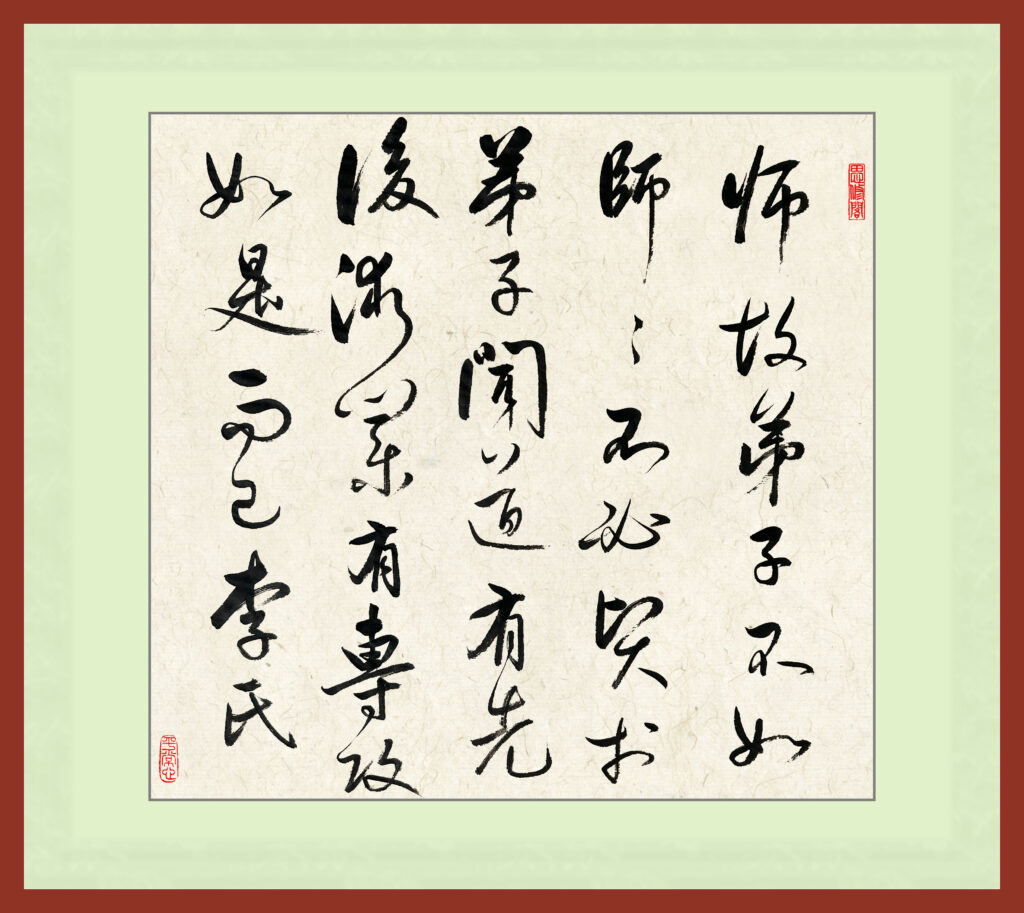 思修閣
师故弟子不如
師〻不必賢於
弟子聞道有先
後術業有專攻
如是而已李氏
平常心